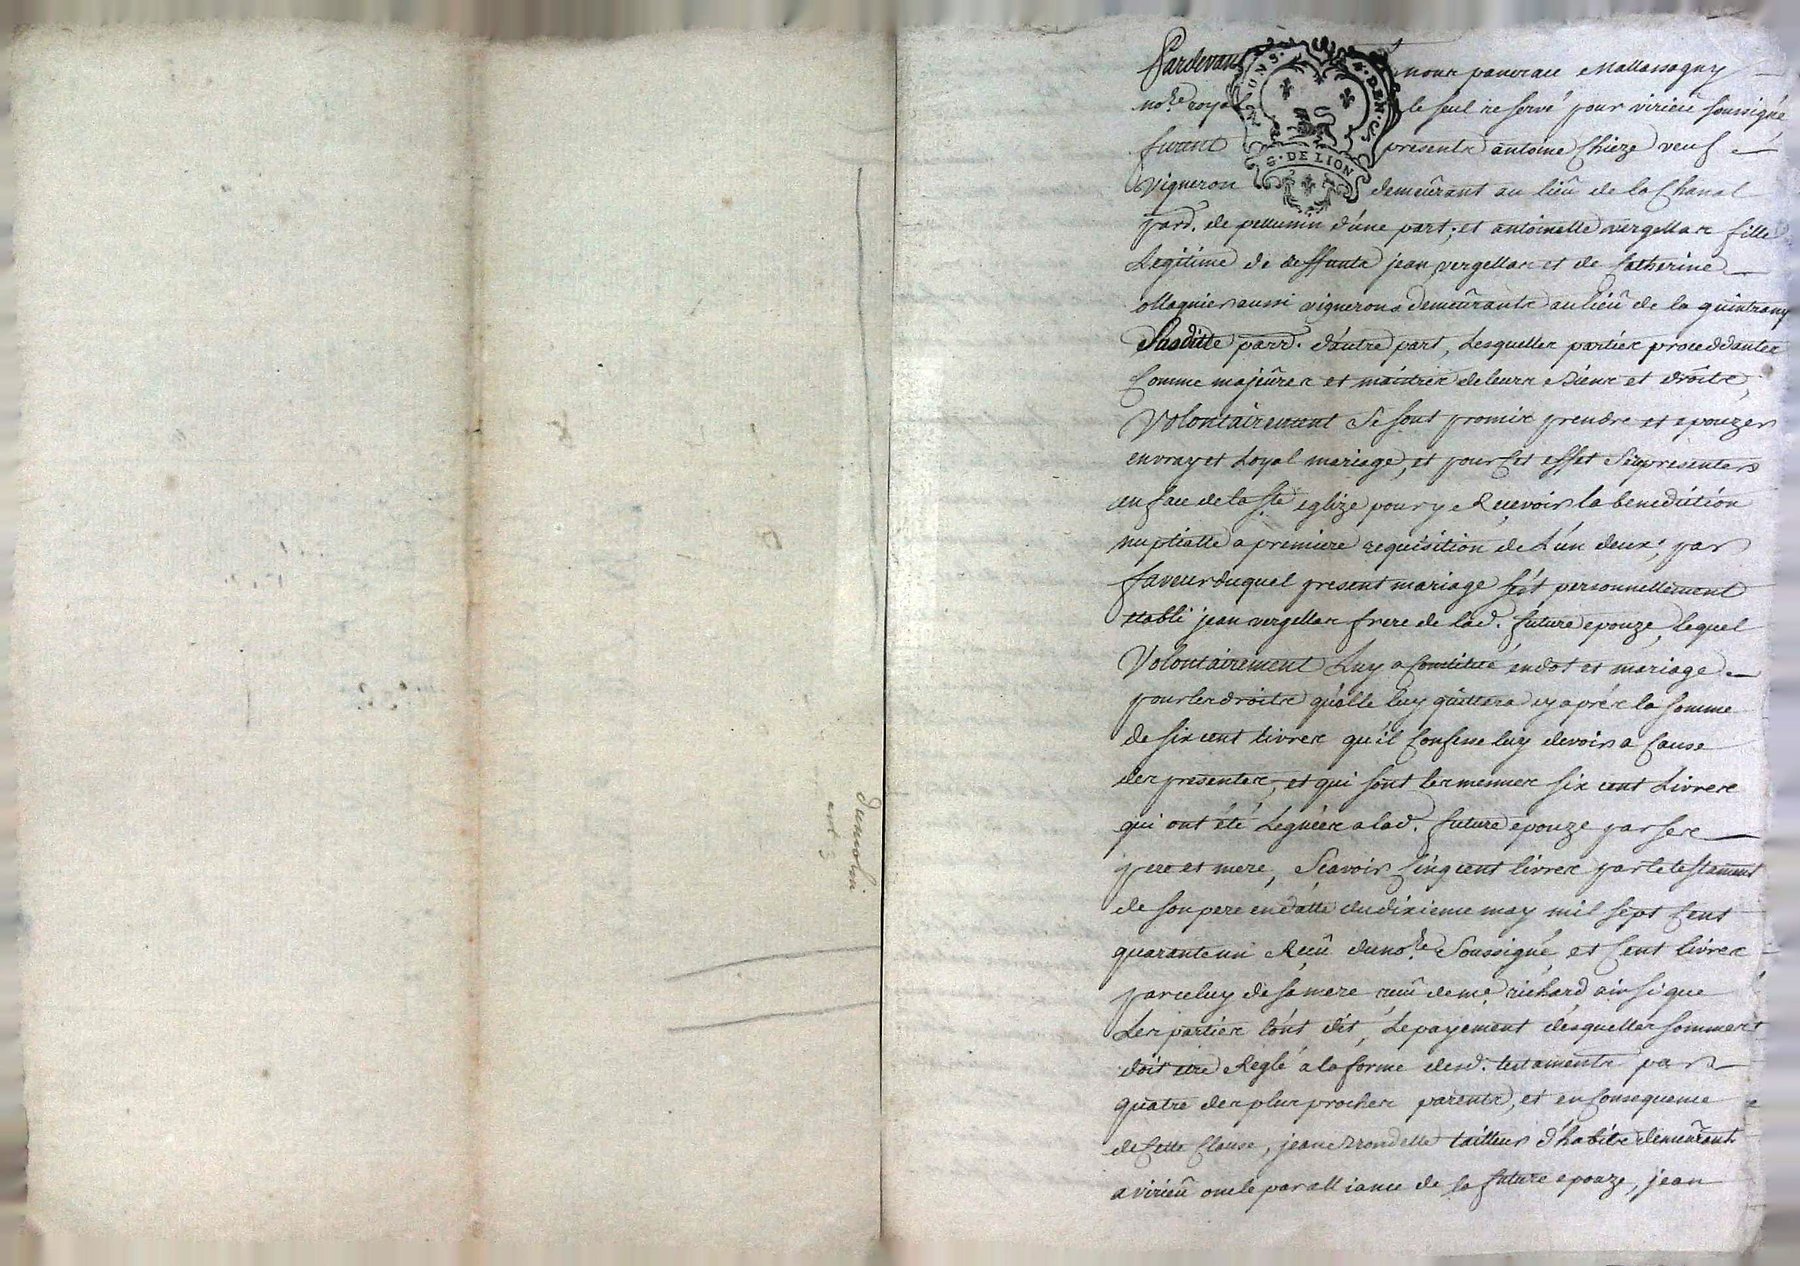 dumolin
art 3
Pardevant nous pancrace Mallassagny
no.re royal le seul reservé pour virieû soussigné
furent présents antoine Chieze veuf
vigneron demeûrant au lieû de la Chanal
parr. de pellussin d'une part, et antoinette vergellas fille
Legitime de deffunts jean vergellas et de Catherine
ollagnier aussi vignerons demeûrante au lieû de la quintrany
Susditte parr. d'autre part, Lesquelles parties proceddantes
Comme majeûres et maitres de leurs Biens et droits,
Volontairement Se sont promis prendre et epouzer
en vray et Loyal mariage, et pour Cet effet Se presenter
en face de la Ste eglize pour y Recevoir la benediction
nuptialle a premiere requisition de L'un deux, par
faveur duquel present mariage s'est personnellement
etabli jean vergellas frere de lad. future epouze, lequel
Volontairement Luy a Constitué en dot et mariage
pour les droits qu'elle luy quittera cy après la somme
de six cent livres qu'il Confesse luy devoir a Cause
des presentes, et qui sont les mesmes six cent Livres
qui ont été Leguées a lad. future epouze par ses
pere et mere, Sçavoir Cinq cent livres par le testament
de son pere en datte du dixieme may mil sept Cent
quarante un Reçû du no.re Soussigné, et Cent livres
par celuy de sa mere reçû de me richard ainsi que
Les parties l'ont dit, Le payement desquelles sommes
doit etre Reglé a la forme desd. testaments par
quatre des plus proches parents, et en Consequence
de Cette Clause, jean Brondelle tailleur d'habits demeûrant
a virieû oncle par alliance de la future epouze, jean